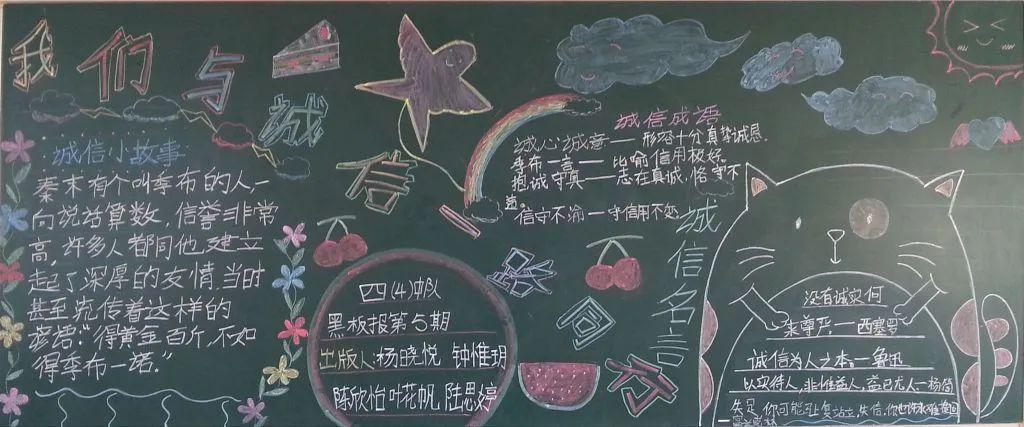 我们与诚信同行
诚信小故事
秦末有个叫季布的人,一
向说话算数,信誉非常
高,许多人都同他建立
起了深厚的友情.当时
甚至流传着这样的
谚语:“得黄金百斤,不如
得季布一诺.”
四(4)中队
黑板报第5期
出版人:杨晓悦 钟惟玥
陈欣怡 叶花帆 陆思婷
诚信成语
诚心诚意——形容十分真挚诚恳.
季布一言——比喻信用极好.
抱诚守真——志在真诚,恪守不
信守不渝——守信用不变.
诚信名言
没有诚实何
来尊严——西塞罗
诚信为人之本——鲁迅
以实待人,非惟益人,益己尤大——杨简
失足,你可能马上复站立,失信,你也许永难挽回
——富兰克林